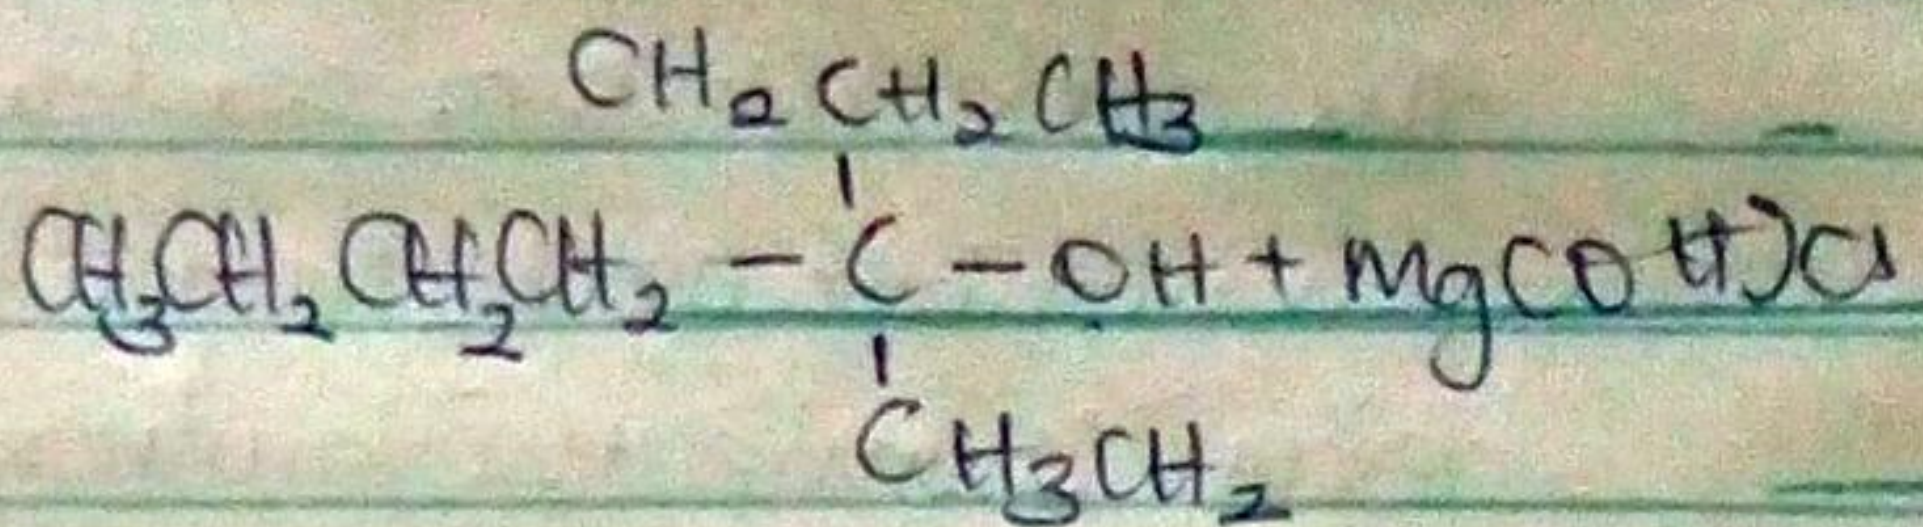 CH₂CH₂CH₃
CH₃CH₂CH₂CH₂ - C - OH + Mg(OH)Cl
CH₃CH₂